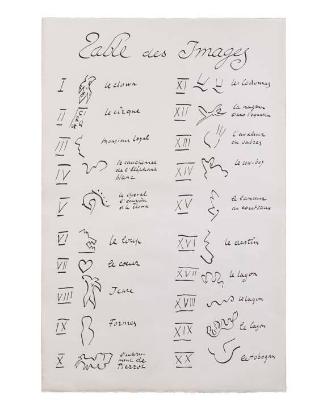 Table des Images
I le clown
II le cirque
III Monsieur Loyal
IV le cauchemar
de l'éléphant
blanc
V le cheval
l'écuyère
et le clown
VI le loup
VII le coeur
VIII Icare
IX Formes
X l'enterre-
ment de
Pierrot
XI les codomas
XII la nageuse
dans l'aquarium
XIII l'avaleur
de sabres
XIV le cow-boy
XV le lanceur
de couteaux
XVI le destin
XVII le lagon
XVIII le lagon
XIX le lagon
XX le toboggan